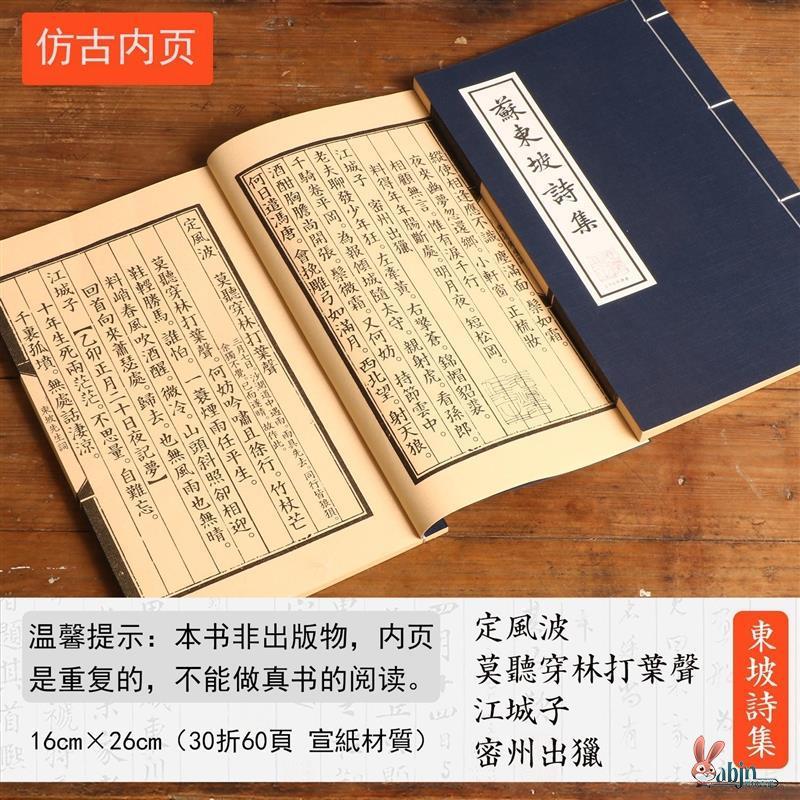 仿古内页
蘇東坡詩集
縱使相逢應不識。塵滿面。鬢如霜。
夜來幽夢忽還鄉。小軒窗。正梳妝。
相顧無言。惟有淚千行。
料得年年腸斷處。明月夜。短松岡。
江城子 密州出獵
老夫聊發少年狂。左牽黃。右擎蒼。錦帽貂裘。
千騎卷平岡。為報傾城隨太守。親射虎。看孫郎。
酒酣胸膽尚開張。鬢微霜。又何妨。持節雲中。
何日遣馮唐。會挽雕弓如滿月。西北望。射天狼。
定風波
三月七日沙湖道中遇雨。雨具先去。同行皆狼狽
余獨不覺。已而遂晴。故作此。
莫聽穿林打葉聲。何妨吟嘯且徐行。竹杖芒
鞋輕勝馬。誰怕。一蓑煙雨任平生。
料峭春風吹酒醒。微冷。山頭斜照卻相迎。
回首向來蕭瑟處。歸去。也無風雨也無晴。
江城子【乙卯正月二十日夜記夢】
十年生死兩茫茫。不思量。自難忘。
千裏孤墳。無處話淒涼。
東坡先生詞
温馨提示：本书非出版物，内页
是重复的，不能做真书的阅读。
16cm×26cm（30折60頁 宣紙材質）
定風波
莫聽穿林打葉聲
江城子
密州出獵
東坡詩集
abjn